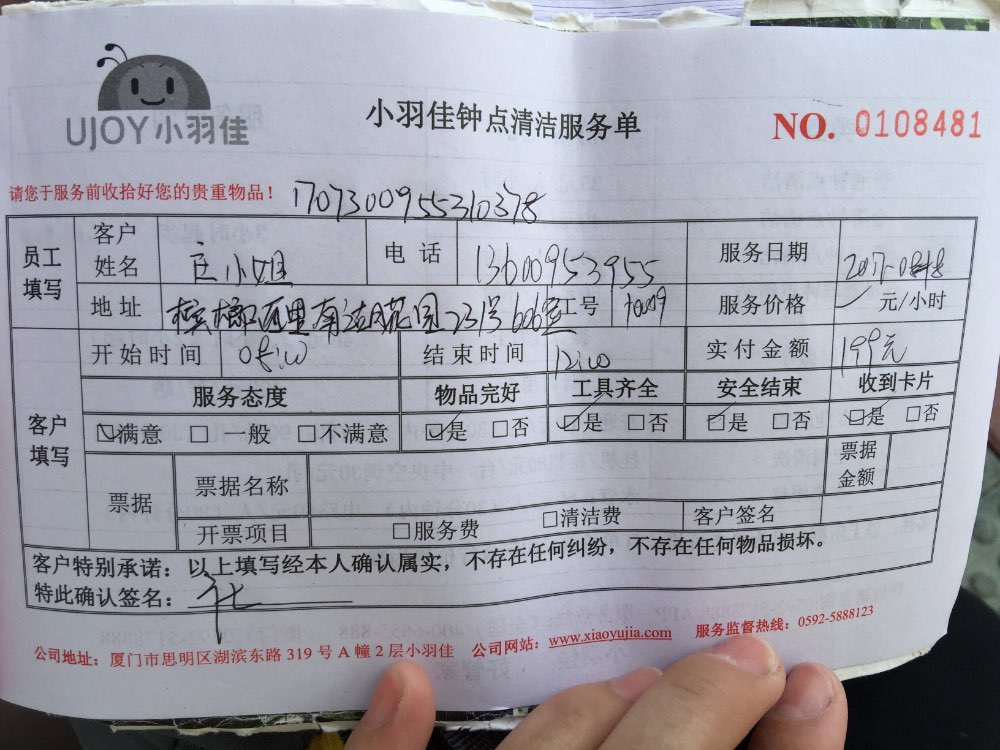 UJOY小羽佳
小羽佳钟点清洁服务单
NO. 0108481
请您于服务前收拾好您的贵重物品！
员工填写 客户姓名 小姐 电话 13600953955 服务日期
地址 23号606室 工号 服务价格 元/小时
开始时间 结束时间 12:00 实付金额 199元
客户填写 服务态度 物品完好 工具齐全 安全结束 收到卡片
☑满意 □一般 □不满意 ☑是 □否 ☑是 □否 ☑是 □否 ☑是 □否
票据 票据名称 票据金额
开票项目 □服务费 □清洁费 客户签名
客户特别承诺：以上填写经本人确认属实，不存在任何纠纷，不存在任何物品损坏。
特此确认签名：
公司地址：厦门市思明区湖滨东路 319 号 A 幢 2 层小羽佳 公司网站：www.xiaoyujia.com 服务监督热线：0592-5888123